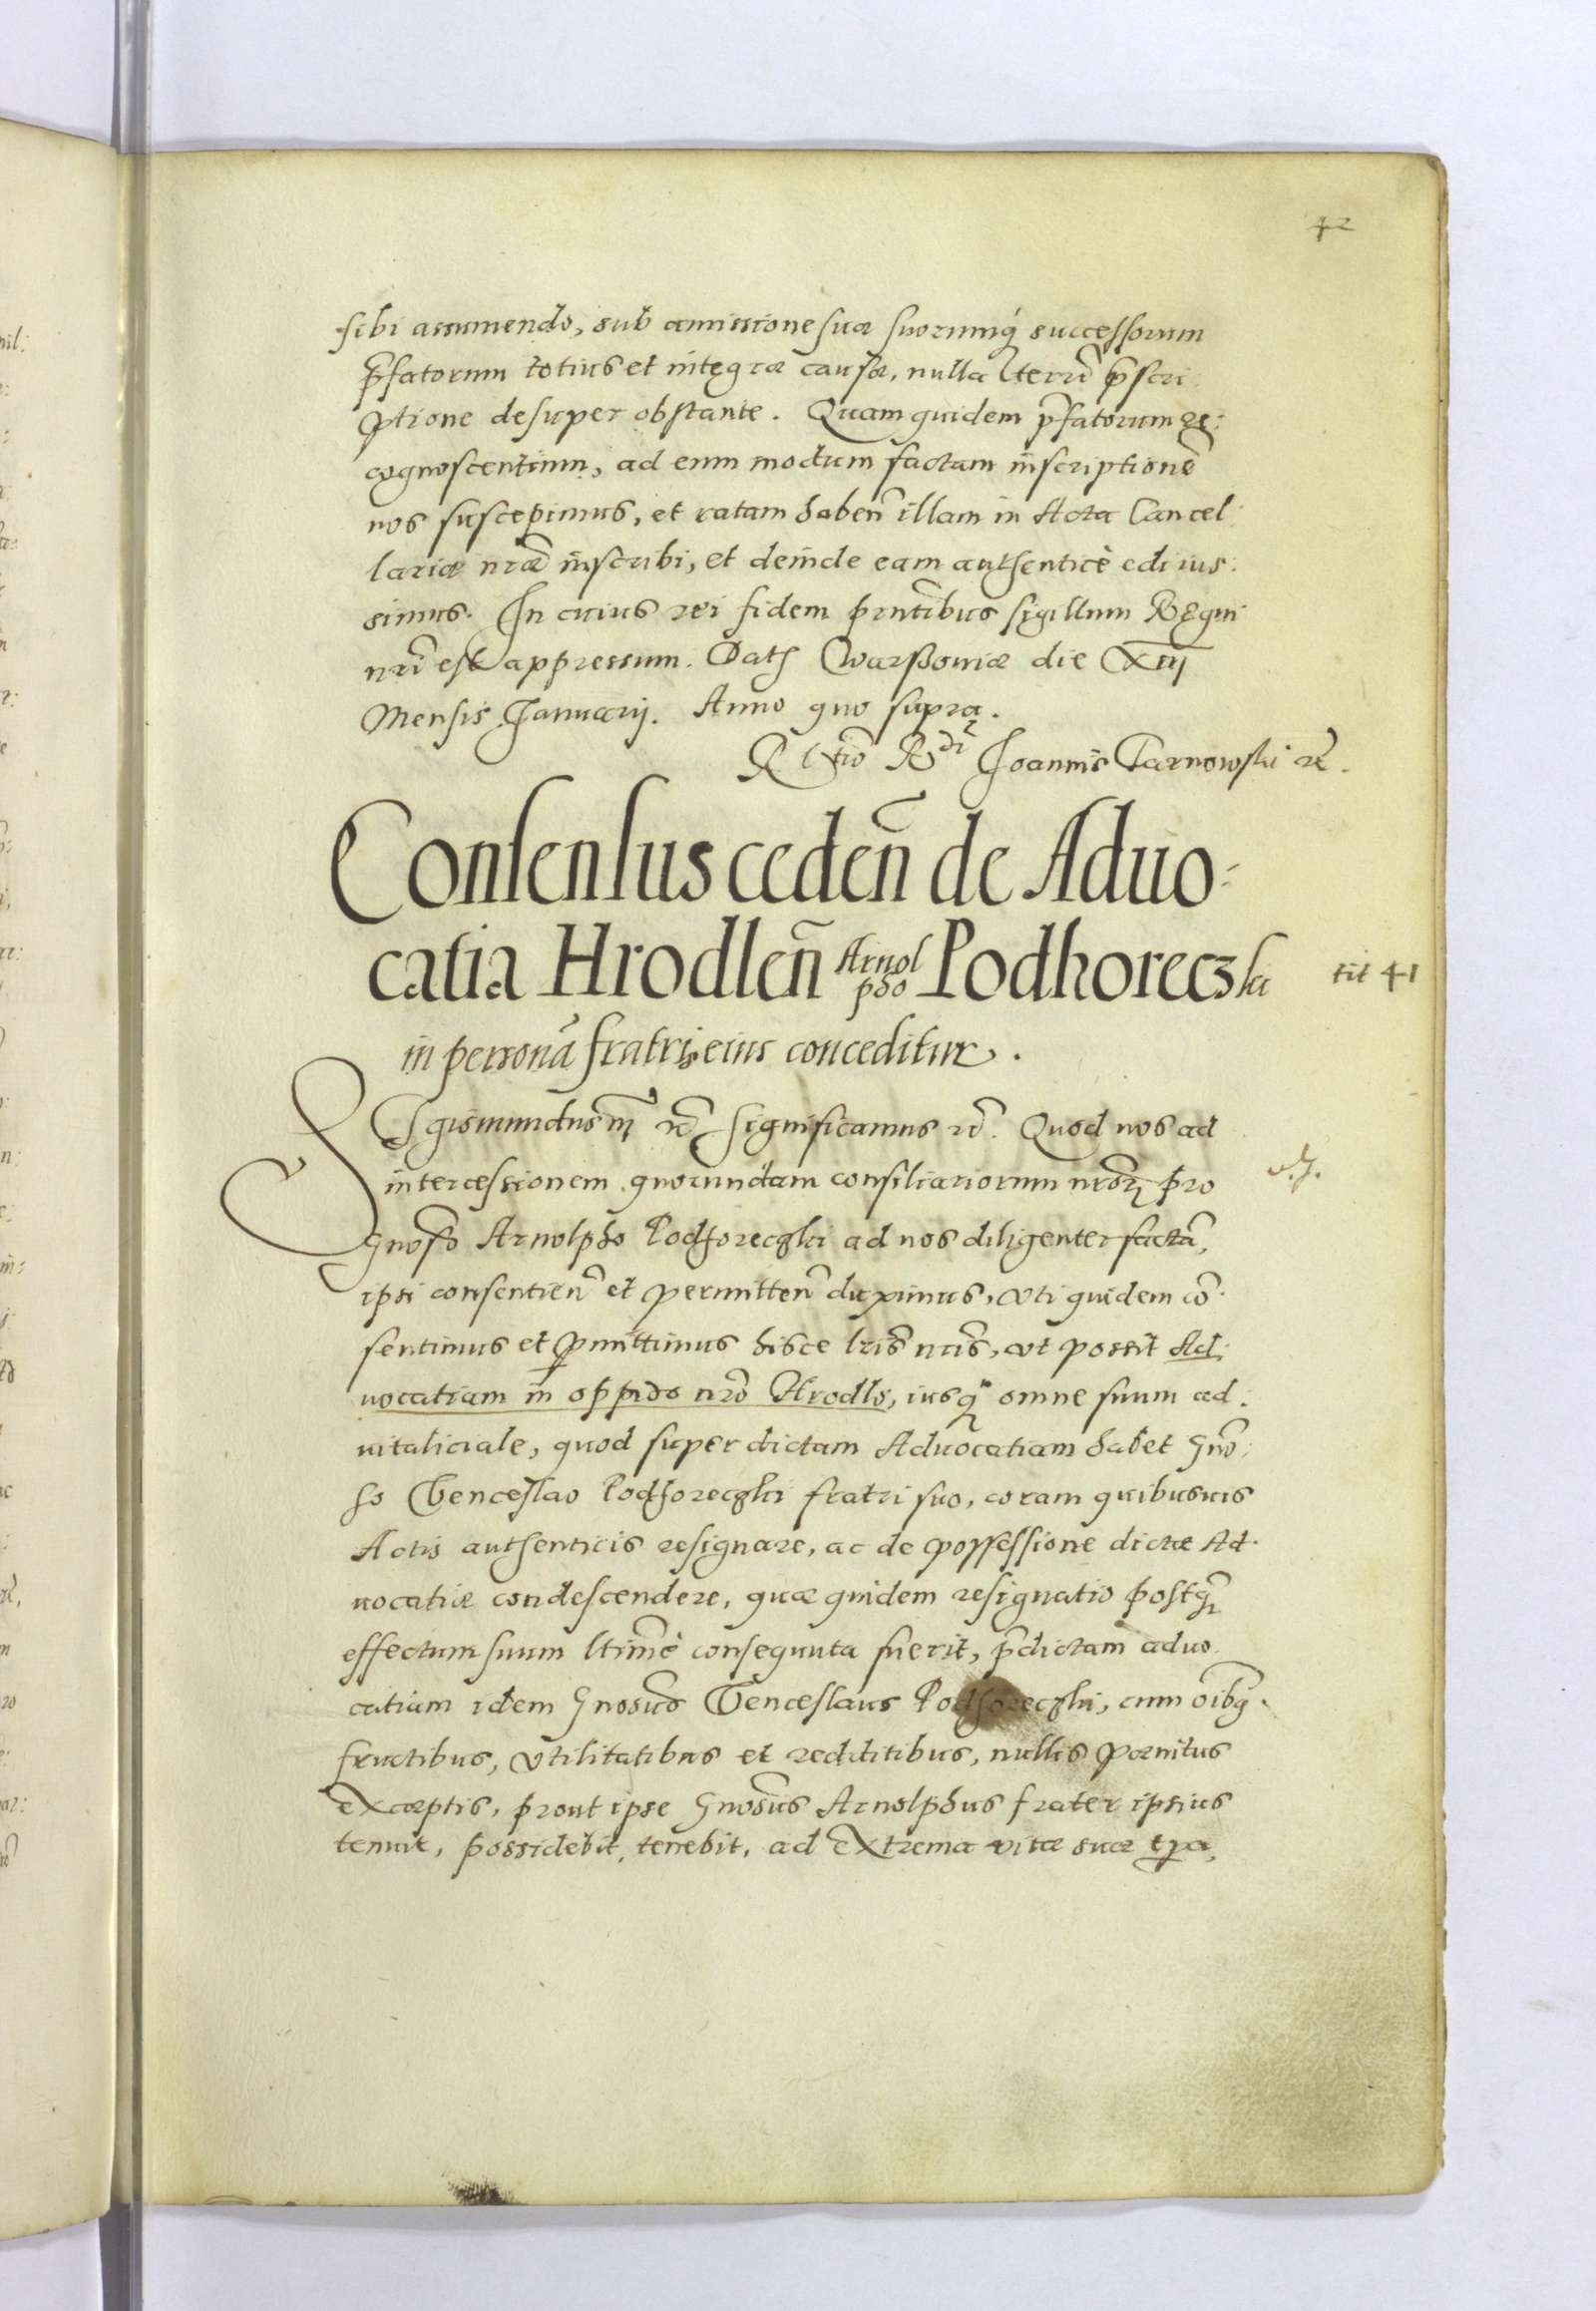 42
sibi assumendo, sub amissione suæ suorumq́ successorum
p̃fatorum totius et integræ causæ, nulla terrẽ p̃scri
ptione desuper obstante. Quam quidem p̃fatorum re:
cognoscentium, ad eum modum factam inscriptionẽ
nos suscepimus, et ratam haben̄ illam in Acta Cancel
lariæ nr̃æ inscribi, et deinde eam authenticè edi ius:
simus. In cuius rei fidem pr̃ntibus sigillum Regni
nr̃i est appressum. Dat Warßoviæ die XIIJ
Mensis Januarij. Anno quo supra.
R ltio R di Joannis Tarnowski rc̃.
Consensus ceden̄ de Aduo:
catia Hrodlen̄ Arnolpho Podhoreczki
tit 41
in personã fratris eius conceditur.
SIgismundus III rc̃ significamus rc̃. Quod nos ad
intercessionem quorundam consiliariorum nrõrꝝ pro
Gnoso Arnolpho Podhoreczki ad nos diligenter factã,
ipsi consentien̄ et permitten̄ duximus, vti quidem cõ
sentimus et pmittimus hisce lr̃is nr̃is, vt possit Ad:
uocatiam in oppido nr̃o Hrodlo, iusq́ omne suum ad:
uitaliciale, quod super dictam Aduocatiam habet Gno:
so Venceslao Podhoreczki fratri suo, coram quibusuis
Actis authenticis resignare, ac de possessione dictæ Ad:
uocatiæ condescendere, quæ quidem resignatio postq̃
effectum suum ltimè consequuta fuerit, p̃dictam aduo
catiam idem Gnosus Venceslaus Podhoreczki, cum oĩbq́
fructibus, vtilitatibus et redditibus, nullis pænitus
excæptis, prout ipse Gnosus Arnolphus frater ipsius
tenuit, possidebit, tenebit, ad extrema vitæ suæ tp̃a,